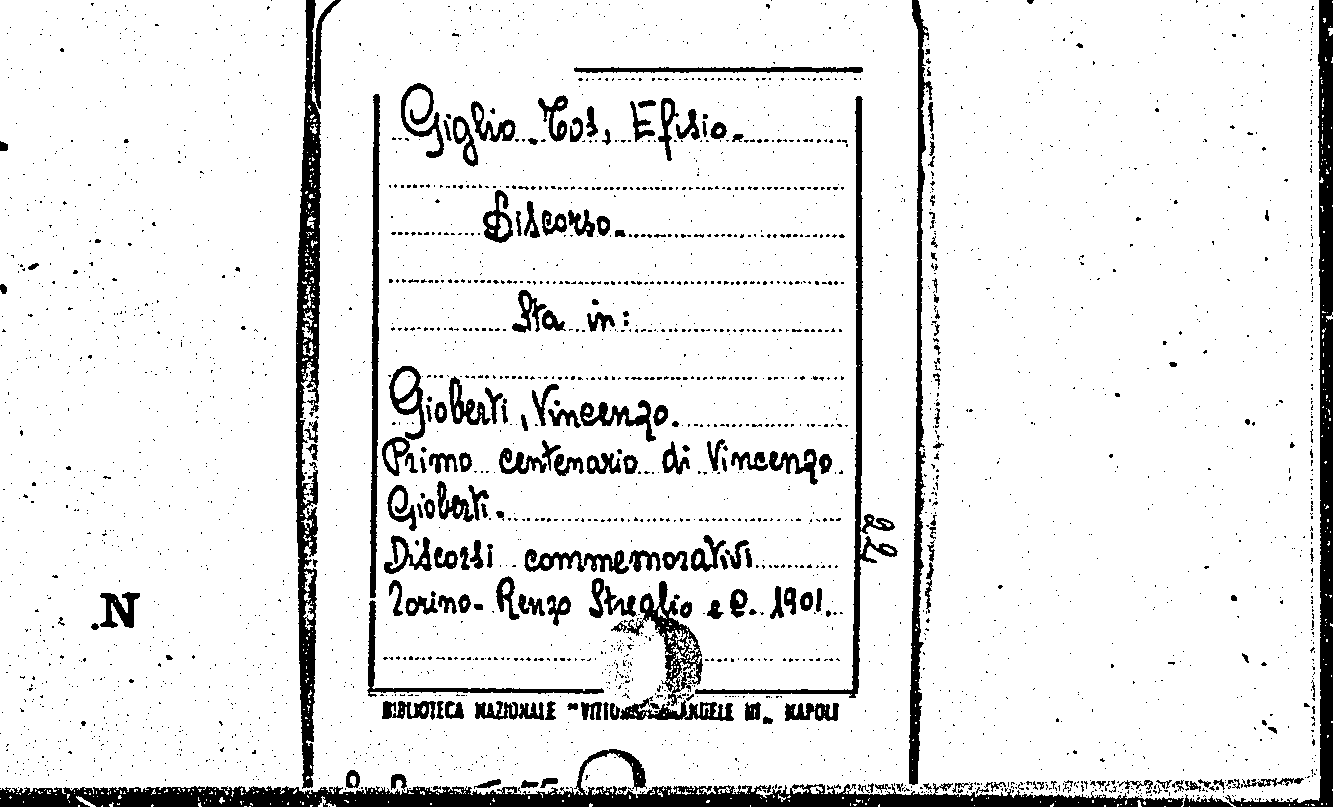 Giglio-Tos, Efisio.
Discorso.
Sta in:
Gioberti, Vincenzo.
Primo centenario di Vincenzo
Gioberti.
Discorsi commemorativi
Torino- Renzo Streglio e C. 1901.
22
.N
BIBLIOTECA NAZIONALE "VITTORIO EMANUELE III" NAPOLI